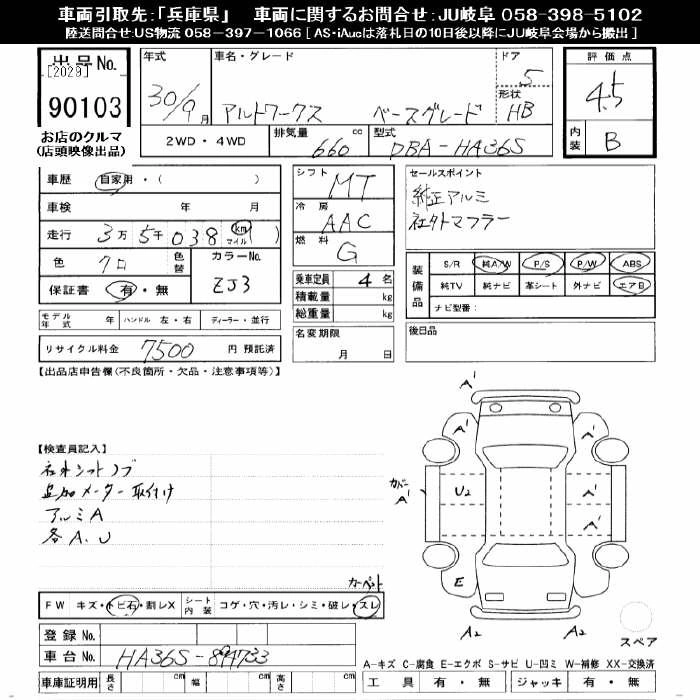 車両引取先:「兵庫県」 車両に関するお問合せ:JU岐阜 058-398-5102
陸送問合せ:US物流 058-397-1066 [ AS・iAucは落札日の10日後以降にJU岐阜会場から搬出 ]
出品No.
[2029]
90103
お店のクルマ
(店頭映像出品)
年式
30/9月
車名・グレード
アルトワークス ベースグレード
ドア
5
形状
HB
2WD・4WD
排気量
660 cc
型式
DBA-HA36S
評価点
4.5
内装
B
車歴 自家用・( )
車検 年 月
走行 3万5千038 km マイル )
色 クロ 色替
カラーNo.
ZJ3
保証書 有・無
モデル年式 年 ハンドル 左・右 ディーラー・並行
リサイクル料金 7500 円 預託済
シフト MT
冷房 AAC
燃料 G
乗車定員 4 名
積載量 kg
総重量 kg
名変期限
月 日
セールスポイント
純正アルミ
社外マフラー
装備品
S/R 純A/W P/S P/W ABS
純TV 純ナビ 革シート 外ナビ エアB
ナビ型番:
後日品
【出品店申告欄(不良箇所・欠品・注意事項等)】
【検査員記入】
社外シフトノブ
追加メーター取付け
アルミA
各A.U
カーペット
FW キズ・トビ石・割レX
シート内装 コゲ・穴・汚レ・シミ・破レ・スレ
登録No.
車台No. HA36S-894733
車庫証明用 長さ cm 幅 cm 高さ cm
A'
A'
A'
カバー
A'
U2
A'
A'
E
A2
A2
スペア
A-キズ C-腐食 E-エクボ S-サビ U-凹ミ W-補修 XX-交換済
工具 有・無 ジャッキ 有・無